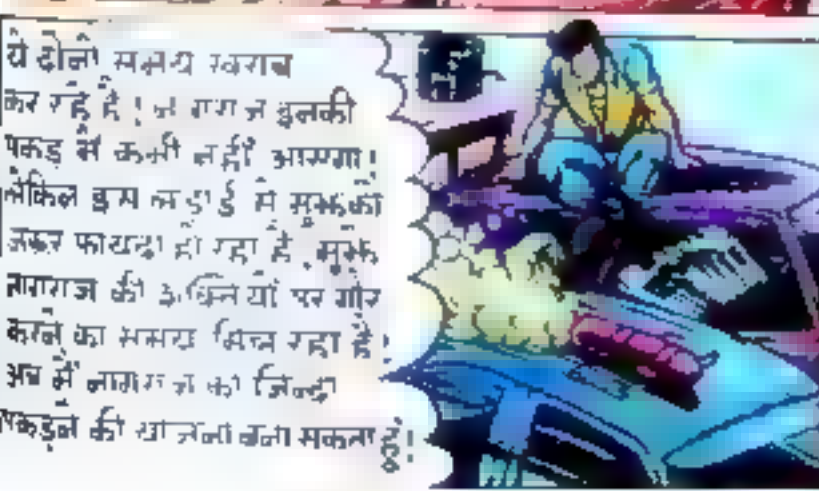 ये दोनों समय खराब
कर रहे हैं! नागराज इनकी
पकड़ में कभी नहीं आएगा!
लेकिन इस लड़ाई से मुझको
जरूर फायदा हो रहा है, मुझे
नागराज की शक्तियों पर गौर
करने का समय मिल रहा है!
अब मैं नागराज को जिन्दा
पकड़ने की योजना बना सकता हूं!